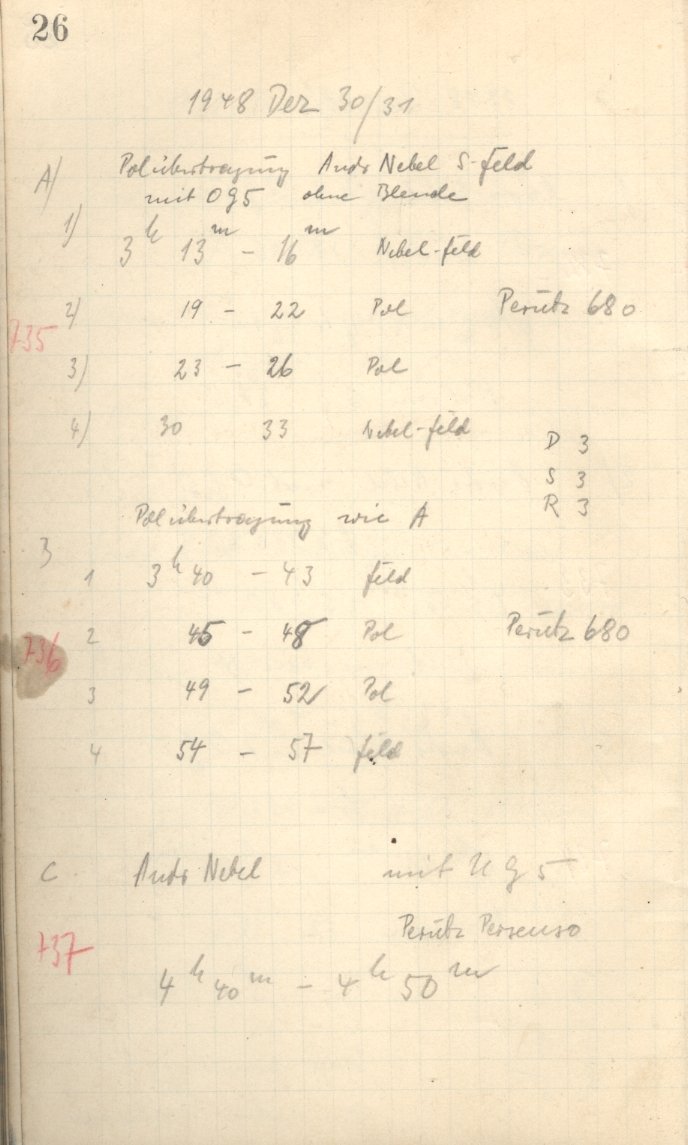 26
1948 Dez 30/31
A) Polübertragung Andr Nebel S-feld
mit OG5 ohne Blende
1) 3h 13m - 16m Nebel-feld
2) 19 - 22 Pol Perutz 680
735
3) 23 - 26 Pol
4) 30 33 Nebel-feld
D 3
S 3
R 3
Polübertragung wie A
B
1 3h 40 - 43 feld
2 45 - 48 Pol Perutz 680
736
3 49 - 52 Pol
4 54 - 57 feld
C Andr Nebel mit UG5
Perutz Persenso
737
4h 40m - 4h 50m